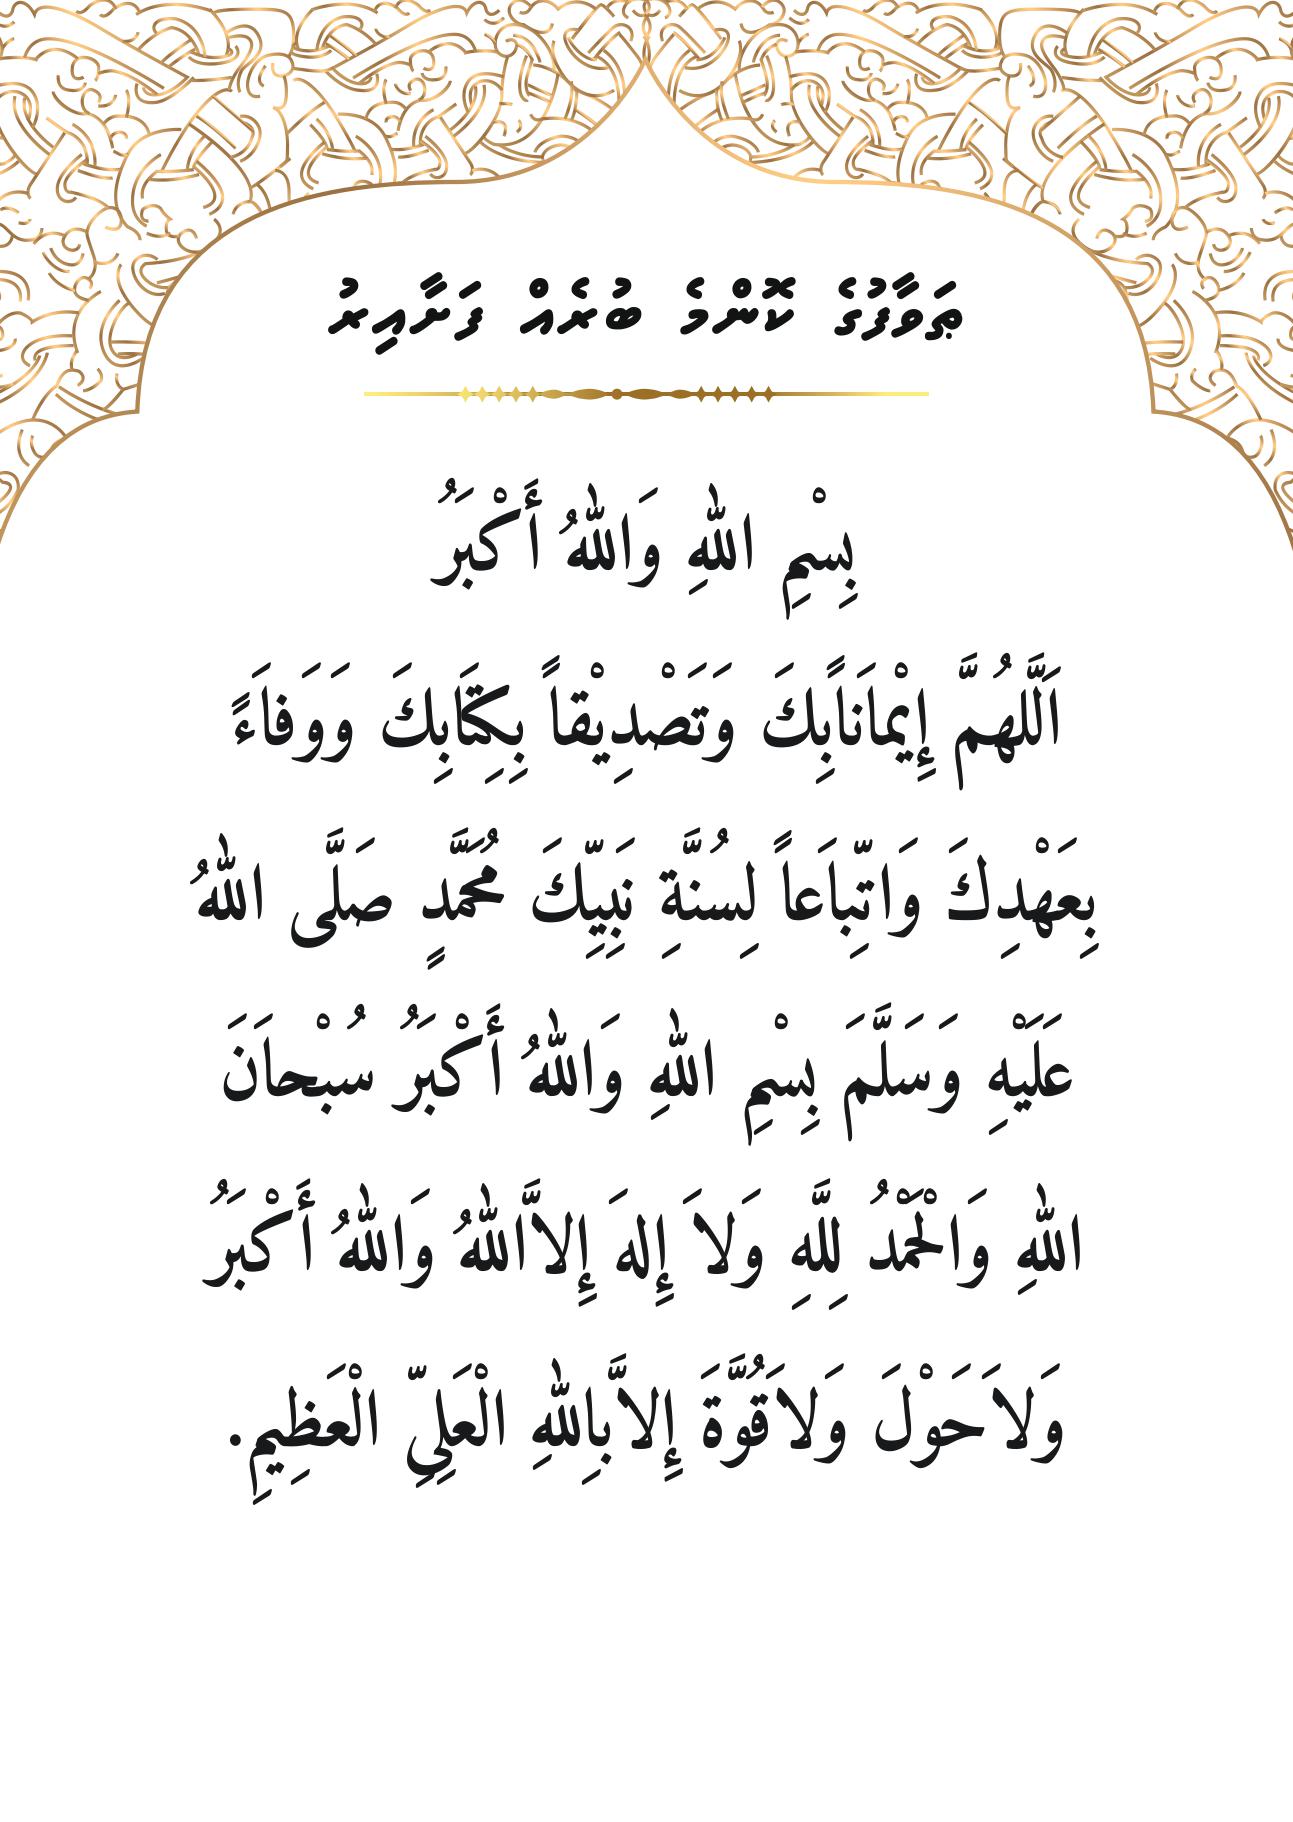 ޠަވާފުގެ ކޮންމެ ބުރެއް ފަށާއިރު
بِسْمِ اللهِ وَاللهُ أَكْبَرُ
اَللَّهُمَّ إِيْمَانَاًبِكَ وَتَصْدِيْقاً بِكِتَابِكَ وَوَفَاءً
بِعَهْدِكَ وَاتِّبَاعَاً لِسُنَّةِ نَبِيِّكَ مُحَمَّدٍ صَلَّى اللهُ
عَلَيْهِ وَسَلَّمَ بِسْمِ اللهِ وَاللهُ أَكْبَرُ سُبْحَانَ
اللهِ وَالْحَمْدُ لِلَّهِ وَلاَ إِلهَ إِلاَّاللهُ وَاللهُ أَكْبَرُ
وَلاَحَوْلَ وَلاَقُوَّةَ إِلاَّبِاللهِ الْعَلِيِّ الْعَظِيمِ.